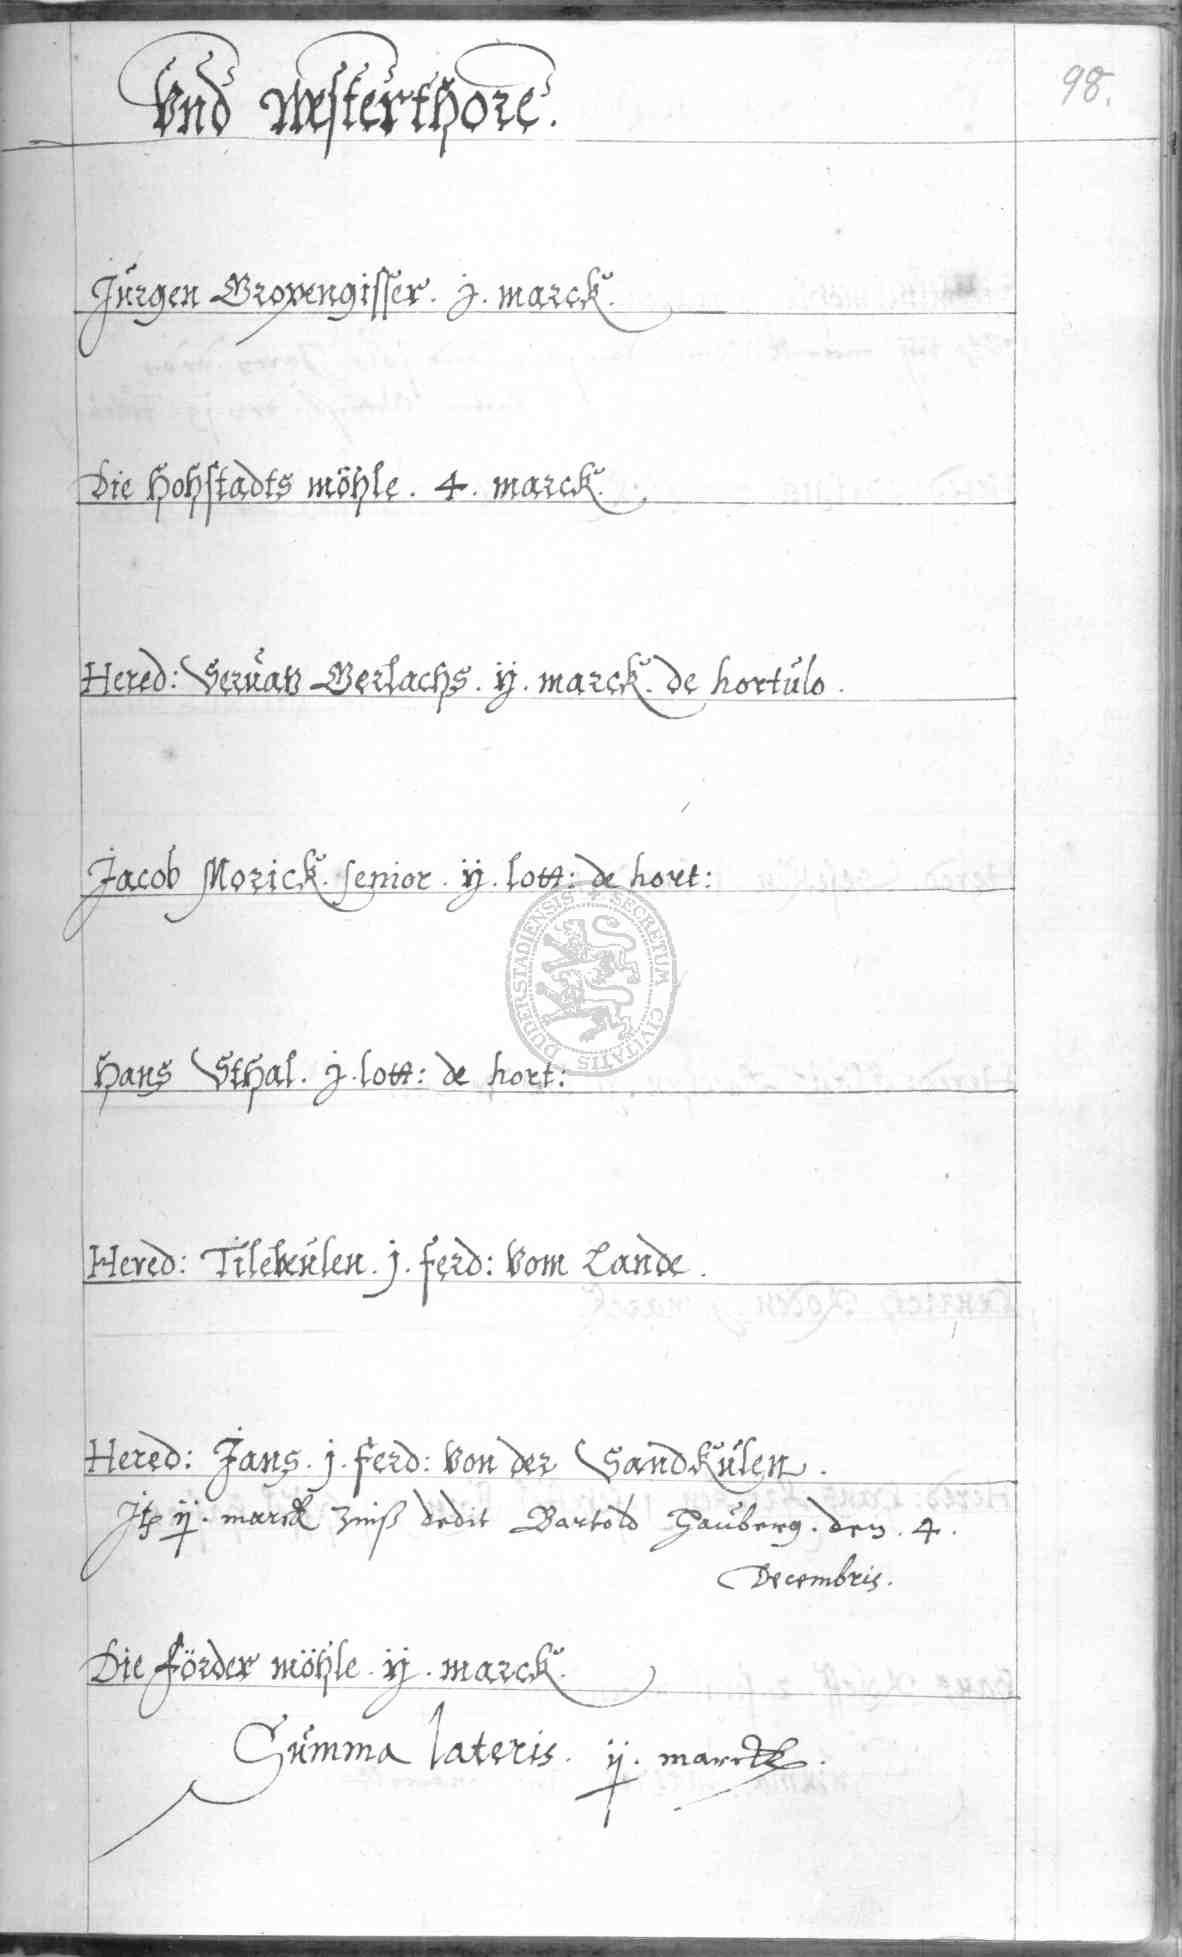 Vnd Westerthore.
98.
Jürgen Gropengisser. j. marck.
Die Hohstadts möhle. 4. marck.
Hered: Servatz Gerlachs. ij. marck. de hortulo.
Jacob Morick. senior. ij. lott: de hort:
DUDERSTADIENSIS SECRETUM CIVITATIS
Hans Sthal. j. lott: de hort:
Hered: Tilekeulen. j. ferd: vom Lande.
Hered: Jans. j. ferd: von der Sandkulen.
ij. marck Zinß dedit Bartold Hauberg. den. 4.
Decembris.
Die förder möhle. ij. marck.
Summa lateris. ij. marck.